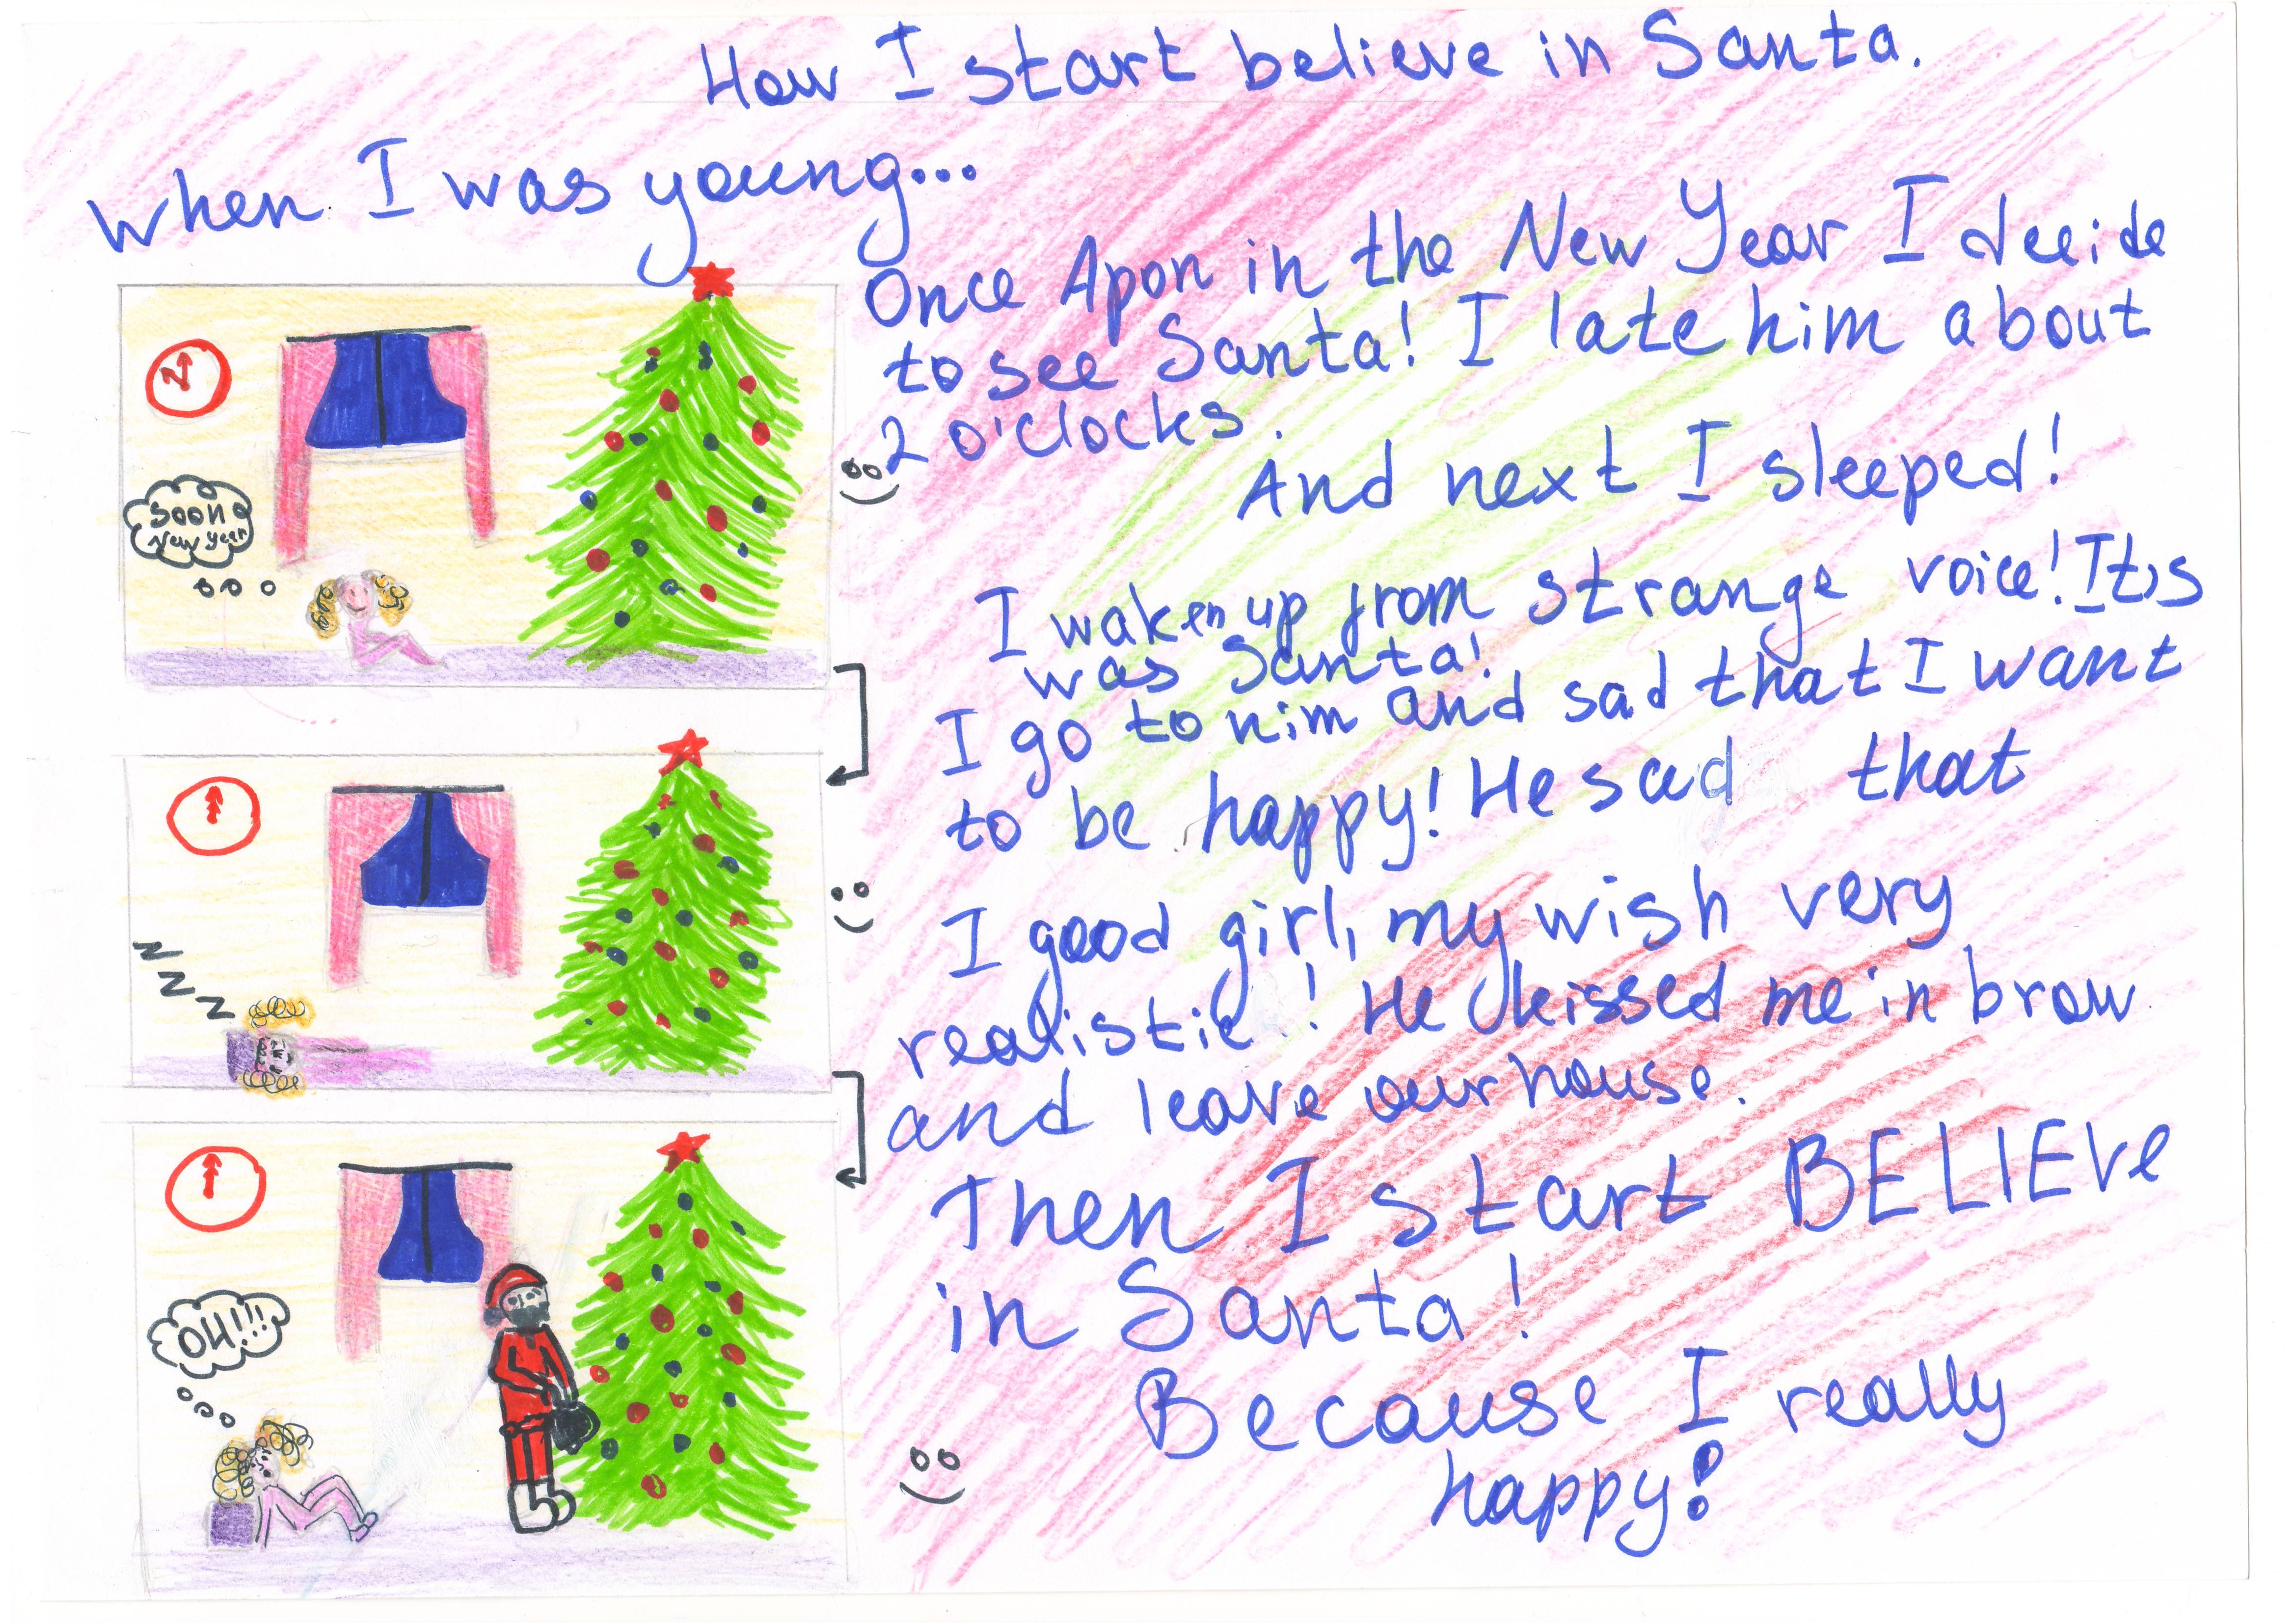 How I start believe in Santa.
When I was young...
Once Apon in the New Year I decide
to see Santa! I late him about
2 o'clocks.
And next I sleeped!
I waken up from strange voice! It,s
was Santa!
I go to him and sad that I want
to be happy! He sad that
I good girl, my wish very
realistic! He kissed me in brow
and leave our house.
Then I start BELIEVe
in Santa!
Because I really
happy!
soon
New year
z
z
z
OH!!!